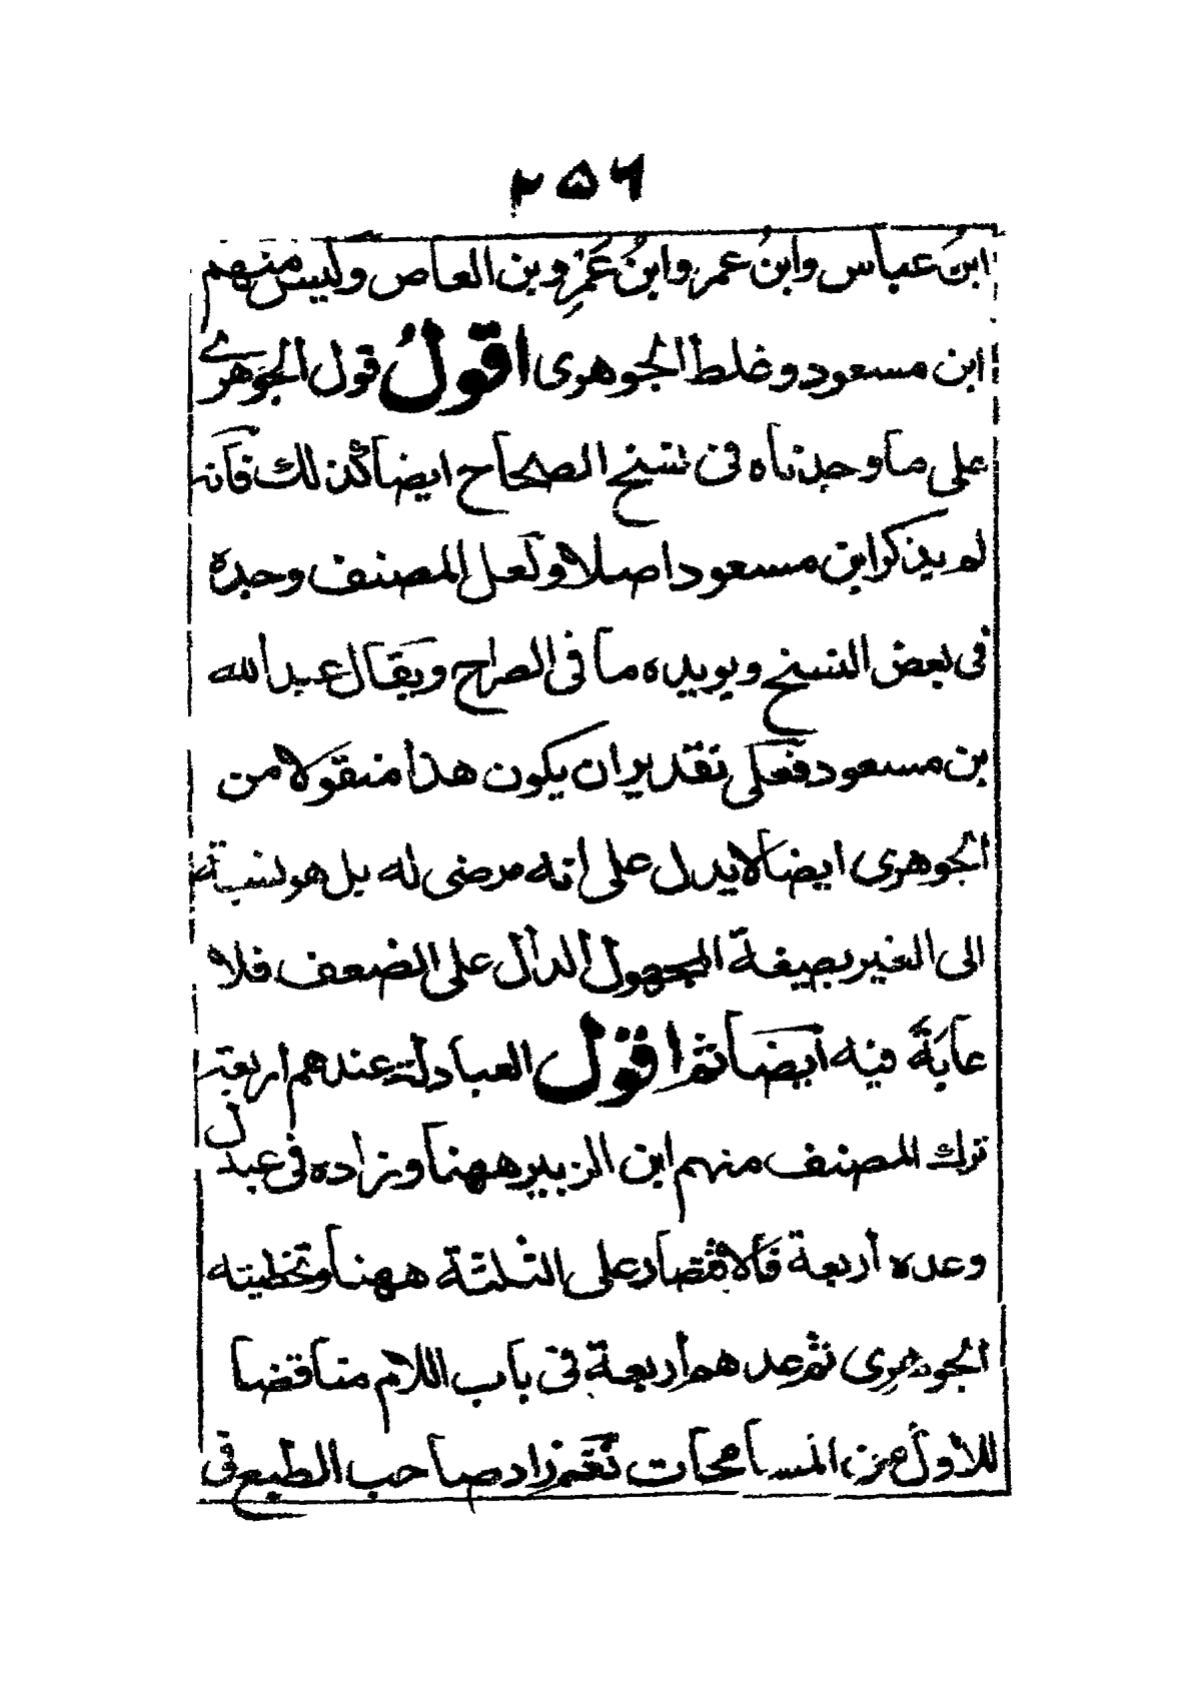 ۲۵۶
ابن عباس وابن عمر وابن عمرو بن العاص وليس منهم
ابن مسعود وغلط الجوهرى اقول قول الجوهرے
على ما وجدناه فى نسخ الصحاح ايضا كذلك فانه
لم يذكر ابن مسعود اصلا ولعل المصنف وجده
فى بعض النسخ ويويده ما فى الصراح ويقال عبد الله
بن مسعود فعلى تقدير ان يكون هذا منقولا من
الجوهرى ايضا لا يدل على انه مرضى له بل هو نسبته
الى الغير بصيغة المجهول الدال على الضعف فلا
غاية فيه ايضا ثم اقول العبادلة عندهم اربعة
ترك المصنف منهم ابن الزبير ههنا وزاده فى عبدل
وعده أربعة فالاقتصار على الثلثة ههنا وتخطيته
الجوهرى ثم عدهم أربعة فى باب اللام مناقضا
للأول من المسامحات نعم زاد صاحب الطبع فى